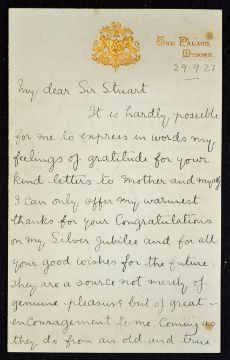 The Palace,
Mysore.
29.9.27
My dear Sir Stuart
It is hardly possible
for me to express in words my
feelings of gratitude for your
kind letters to Mother and myself
I can only offer my warmest
thanks for your Congratulations
on my Silver Jubilee and for all
your good wishes for the future
They are a source not merely of
genuine pleasure but of great
encouragement to me. Coming as
they do from an old and true